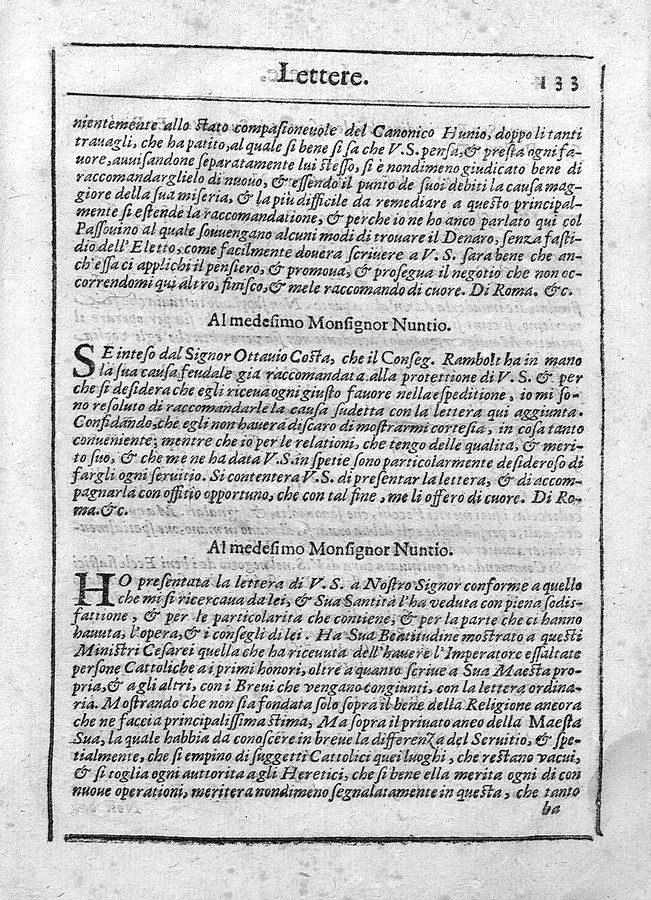 Lettere.
133
nientemente allo stato compasioneuole del Canonico Hunio, doppo li tanti
trauagli, che ha patito, al quale si bene si sa che V.S. pensa, & presta ogni fa-
uore, auuisandone separatamente lui stesso, si è nondimeno giudicato bene di
raccomandarglielo di nuouo, & essendo il punto de suoi debiti la causa mag-
giore della sua miseria, & la più difficile da remediare a questo principal-
mente si estende la raccomandatione, & perche io ne ho anco parlato qui col
Passouino al quale souuengano alcuni modi di trouare il Denaro, senza fasti-
dio dell'Eletto, come facilmente douera scriuere a V.S. sara bene che an-
ch'essa ci applichi il pensiero, & promoua, & prosegua il negotio che non oc-
correndomi qui altro, finisco, & mele raccomando di cuore. Di Roma. &c.
Al medesimo Monsignor Nuntio.
SE inteso dal Signor Ottauio Costa, che il Conseg. Rambolt ha in mano
la sua causa feudale gia raccomandata alla protettione di V.S. & per
che si desidera che egli riceua ogni giusto fauore nella espeditione, io mi so-
no resoluto di raccomandarle la causa sudetta con la lettera qui aggiunta.
Confidando, che egli non hauera discaro di mostrarmi cortesia, in cosa tanto
conueniente; mentre che io per le relationi, che tengo delle qualità, & meri-
to suo, & che me ne ha data V.S. in spetie sono particolarmente desideroso di
fargli ogni seruitio. Si contentera V.S. di presentar la lettera, & di accom-
pagnarla con offitio opportuno, che con tal fine, me li offero di cuore. Di Ro-
ma. &c.
Al medesimo Monsignor Nuntio.
HO presentata la lettera di V.S. a Nostro Signor conforme a quello
che mi si ricercaua da lei, & Sua Santità l'ha veduta con piena sodis-
fattione, & per le particolarita che contiene, & per la parte che ci hanno
hauuta, l'opera, & i consegli di lei. Ha Sua Beatitudine mostrato a questi
Ministri Cesarei quella che ha riceuuta dell'hauere l'Imperatore essaltate
persone Cattoliche a i primi honori, oltre a quanto scriue a Sua Maesta pro-
pria, & a gli altri, con i Breui che vengano congiunti, con la lettera ordina-
ria. Mostrando che non sia fondata solo sopra il bene della Religione ancora
che ne faceia principalissima stima, Ma sopra il priuato aneo della Maesta
Sua, la quale habbia da conoscere in breue la differenza del Seruitio, & spe-
tialmente, che si empino di suggetti Cattolici quei luoghi, che restano vacui,
& si toglia ogni auttorita agli Heretici, che si bene ella merita ogni di con
nuoue operationi, meritera nondimeno segnalatamente in questa, che tanto
ha